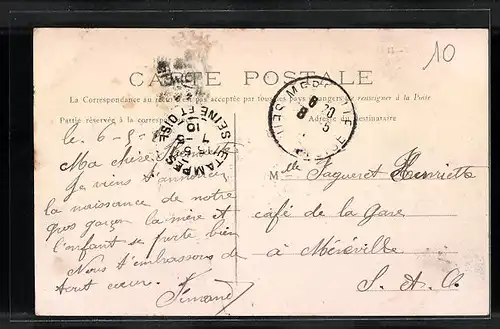 10
CARTE POSTALE
La Correspondance au recto n'est pas acceptée par tous les pays étrangers se renseigner à la Poste
Partie réservée à la correspondance
Adresse du destinataire
ETAMPES SEINE ET OISE
7 - 5
10
MEREVILLE
8 - 5
le 6-5-
Ma chère
Je viens t'annoncer
la naissance de notre
gros garçon la mère et
l'enfant se porte bien
Nous t'embrassons de
tout cœur.
Fernand
Mlle Fagueret Henriette
café de la Gare
à Méréville
S. & O.